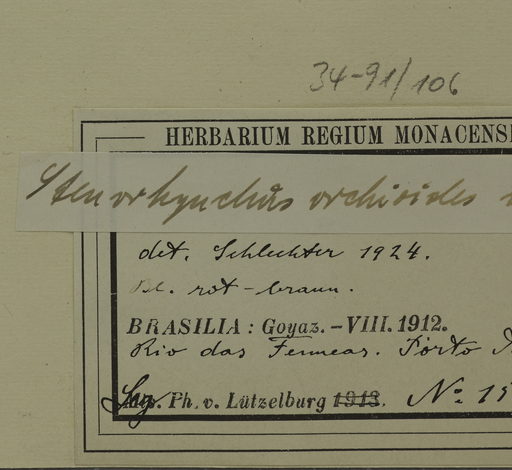 34-91/106
HERBARIUM REGIUM MONACENS
Stenorhynchus orchioides
det. Schlechter 1924.
Bl. rot-braun.
BRASILIA: Goyaz. - VIII. 1912.
Rio das Femeas. Porto
Ph. v. Lützelburg 1913. No. 15